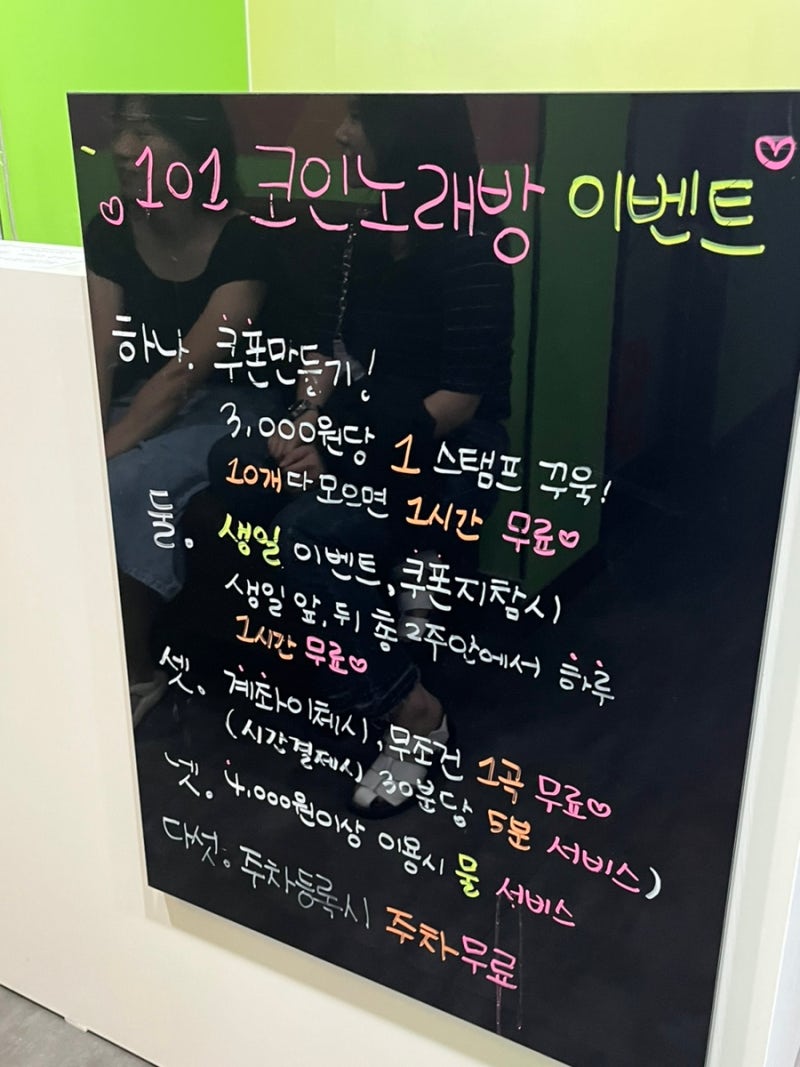 101 코인노래방 이벤트
하나. 쿠폰만들기!
3,000원당 1 스탬프 꾸욱!
10개 다 모으면 1시간 무료♡
둘. 생일 이벤트, 쿠폰지참시
생일 앞, 뒤 총 2주안에서 하루
1시간 무료♡
셋. 계좌이체시, 무조건 1곡 무료♡
(시간결제시 30분당 5분 서비스)
넷. 4,000원이상 이용시 물 서비스
다섯. 주차등록시 주차무료